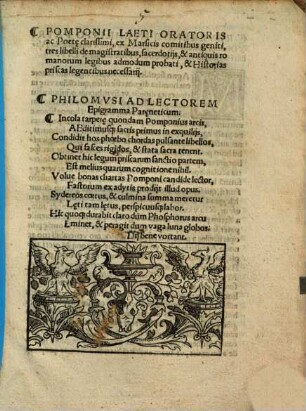 POMPONII LAETI ORATORIS
ac Poetę clarissimi, ex Marsicis comitibus geniti,
tres libelli de magistratibus, sacerdotijs, & antiquis ro
manorum legibus admodum probati, & Historias
priscas legentibus necessarij.
PHILOMVSI AD LECTOREM
Epigramma Paręneticum.
Incola tarpeię quondam Pomponius arcis,
AEditimusq; sacris primus in exquilijs,
Condidit hos phœbo chordas pulsante libellos,
Qui fasces rigidos, & stata sacra tenent.
Obtinet hic legum priscarum sanctio partem,
Est melius quarum cognitione nihil.
Volue bonas chartas Pomponi candide lector,
Fastorum ex adytis prodijt illud opus.
Sydereos cœtus, & culmina summa meretur
Lęti tam lętus, perspicuusq; labor.
Hęc quoq; durabit claro dum Phosphorus arcu
Eminet, & peragit dum vaga luna globos.
Dij bene vortant.